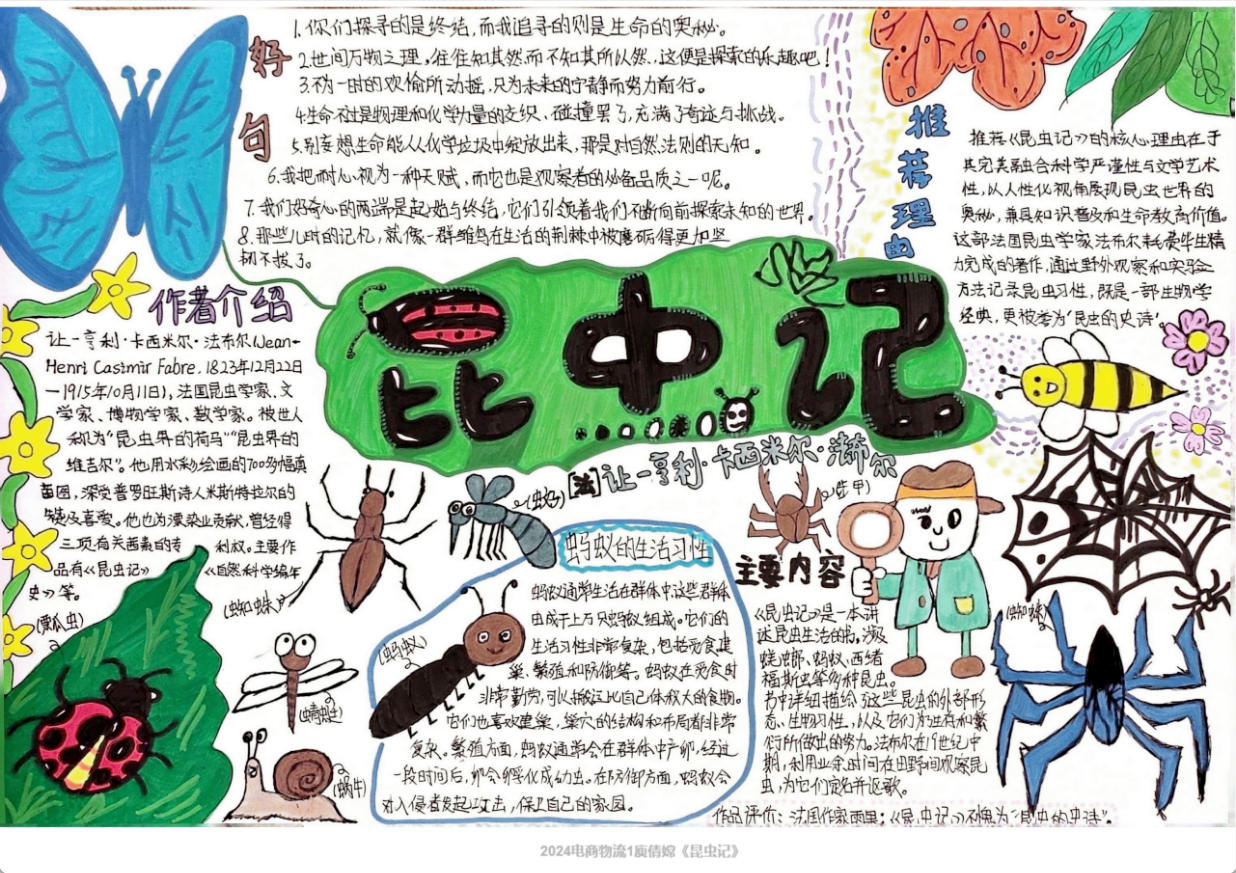 好句
1.你们探寻的是终结,而我追寻的则是生命的奥秘。
2.世间万物之理,往往知其然而不知其所以然,这便是探索的乐趣吧!
3.不为一时的欢愉所动摇,只为未来的宁静而努力前行。
4.生命不过是物理和化学力量的交织、碰撞罢了,充满了奇迹与挑战。
5.别妄想生命能从化学垃圾中绽放出来,那是对自然法则的无知。
6.我把耐心视为一种天赋,而它也是观察者的必备品质之一呢。
7.我们好奇心的两端是起始与终结,它们引领着我们不断向前探索未知的世界。
8.那些儿时的记忆,就像一群雏鸟在生活的荆棘中被磨砺得更加坚
韧不拔了。
推荐理由
推荐《昆虫记》的核心理由在于
其完美融合科学严谨性与文学艺术
性,以人性化视角展现昆虫世界的
奥秘,兼具知识普及和生命教育价值。
这部法国昆虫学家法布尔耗费毕生精
力完成的著作,通过野外观察和实验
方法记录昆虫习性,既是一部生物学
经典,更被誉为“昆虫的史诗”
昆虫记
[法]让-亨利·卡西米尔·法布尔
作者介绍
让-亨利·卡西米尔·法布尔(Jean-
Henri Casimir Fabre.1823年12月22日
—1915年10月11日),法国昆虫学家、文
学家、博物学家、数学家。被世人
称为“昆虫界的荷马”“昆虫界的
维吉尔”。他用水彩绘画的700多幅真
菌图,深受普罗旺斯诗人米斯特拉尔的
及喜爱。他也为漂染业贡献,曾经得
三项有关茜素的专利权。主要作
品有《昆虫记》《自然科学编年
史》等。
(瓢虫)
(蜘蛛)
(蜻蜓)
(蜗牛)
(蚂蚁)
(蜘蛛)
蚂蚁的生活习性
蚂蚁通常生活在群体中这些群体
由成千上万只蚂蚁组成。它们的
生活习性非常复杂,包括觅食、建
巢、繁殖和防御等。蚂蚁在觅食时
非常勤劳,可以搬运比自己体积大的食物。
它们也喜欢建巢,巢穴的结构和布局都非常
复杂。繁殖方面,蚂蚁通常会在群体中产卵,经过
一段时间后,卵会孵化成幼虫。在防御方面,蚂蚁会
对入侵者发起攻击,保卫自己的家园。
主要内容
《昆虫记》是一本讲
述昆虫生活的书,涉及
蜣螂、蚂蚁、西绪
福斯虫等多种昆虫。
书中详细描绘了这些昆虫的外部形
态、生物习性,以及它们为生存和繁
衍所做出的努力。法布尔在19世纪中
期,利用业余时间在田野间观察昆
虫,为它们定名并讴歌。
作品评价:法国作家雨果:《昆虫记》不愧为“昆虫的史诗”。
2024电商物流1庾倩嫦《昆虫记》